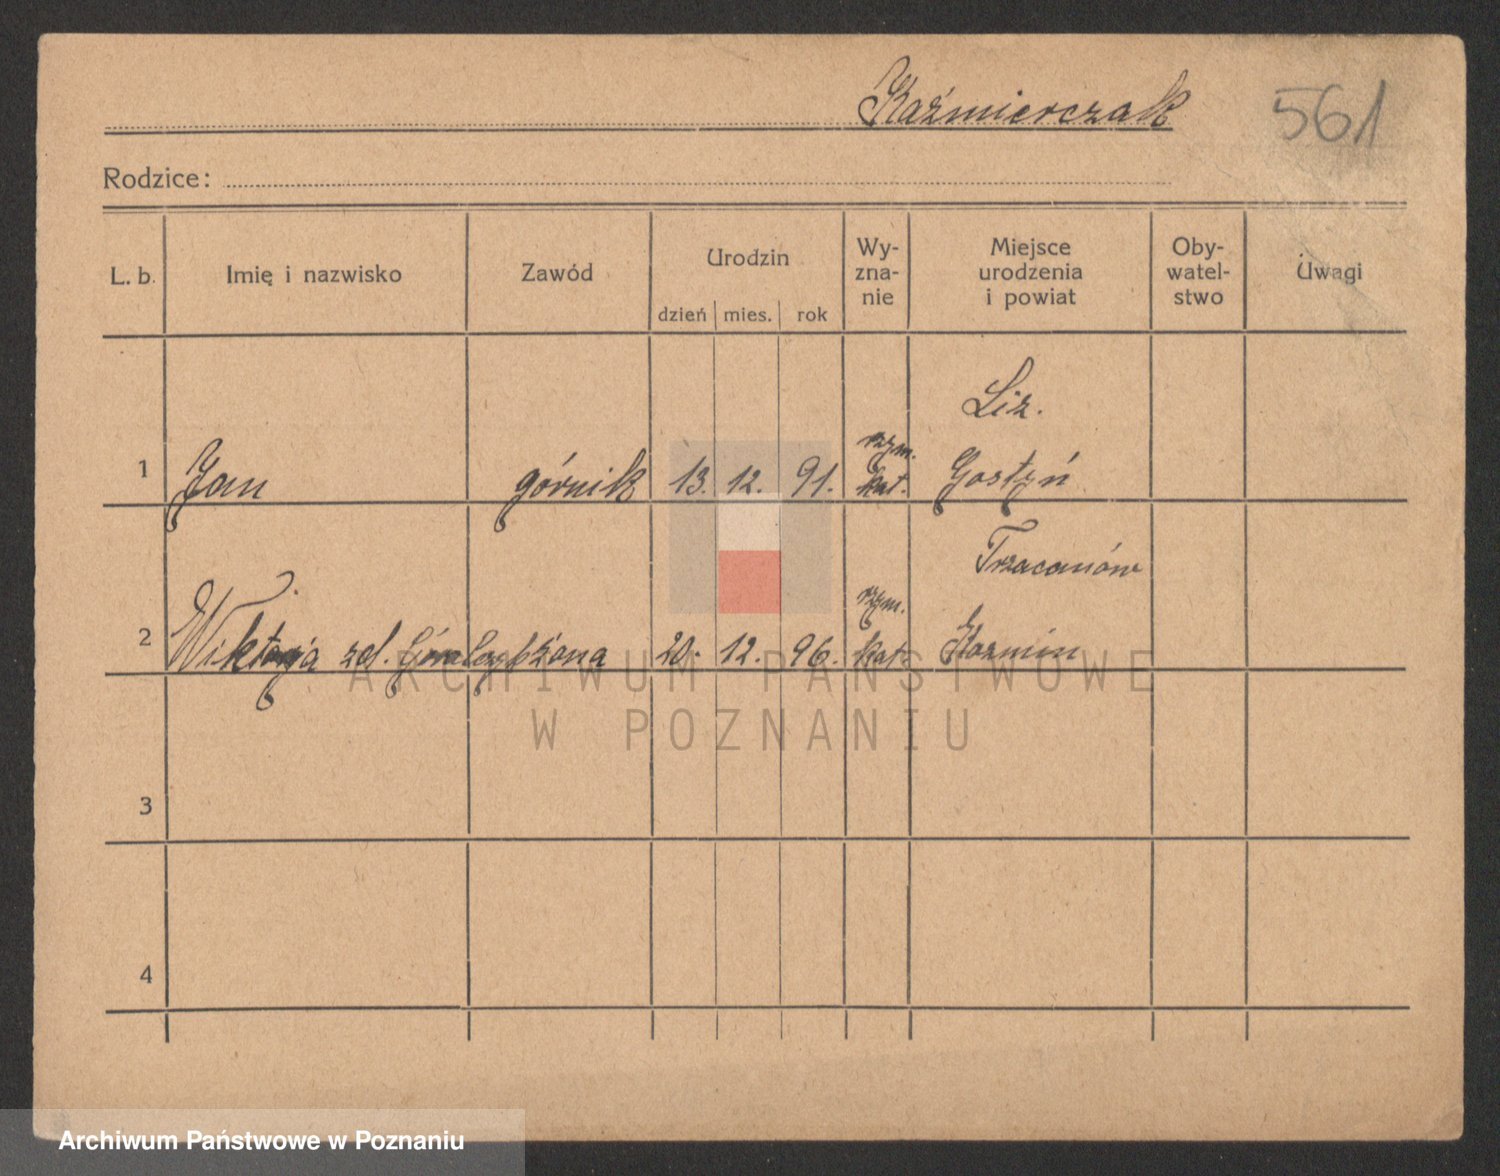 Kaźmierczak
561
Rodzice:
L. b.
Imię i nazwisko
Zawód
Urodzin
dzień
mies.
rok
Wy-
zna-
nie
Miejsce
urodzenia
i powiat
Oby-
watel-
stwo
Uwagi
1
Jan
górnik
13. 12. 91.
rzym.
kat.
Liz.
Gostyń
2
Wiktorja
żona
20. 12. 96.
rzym.
kat.
Koźmin
3
4
ARCHIWUM PAŃSTWOWE
W POZNANIU
Archiwum Państwowe w Poznaniu